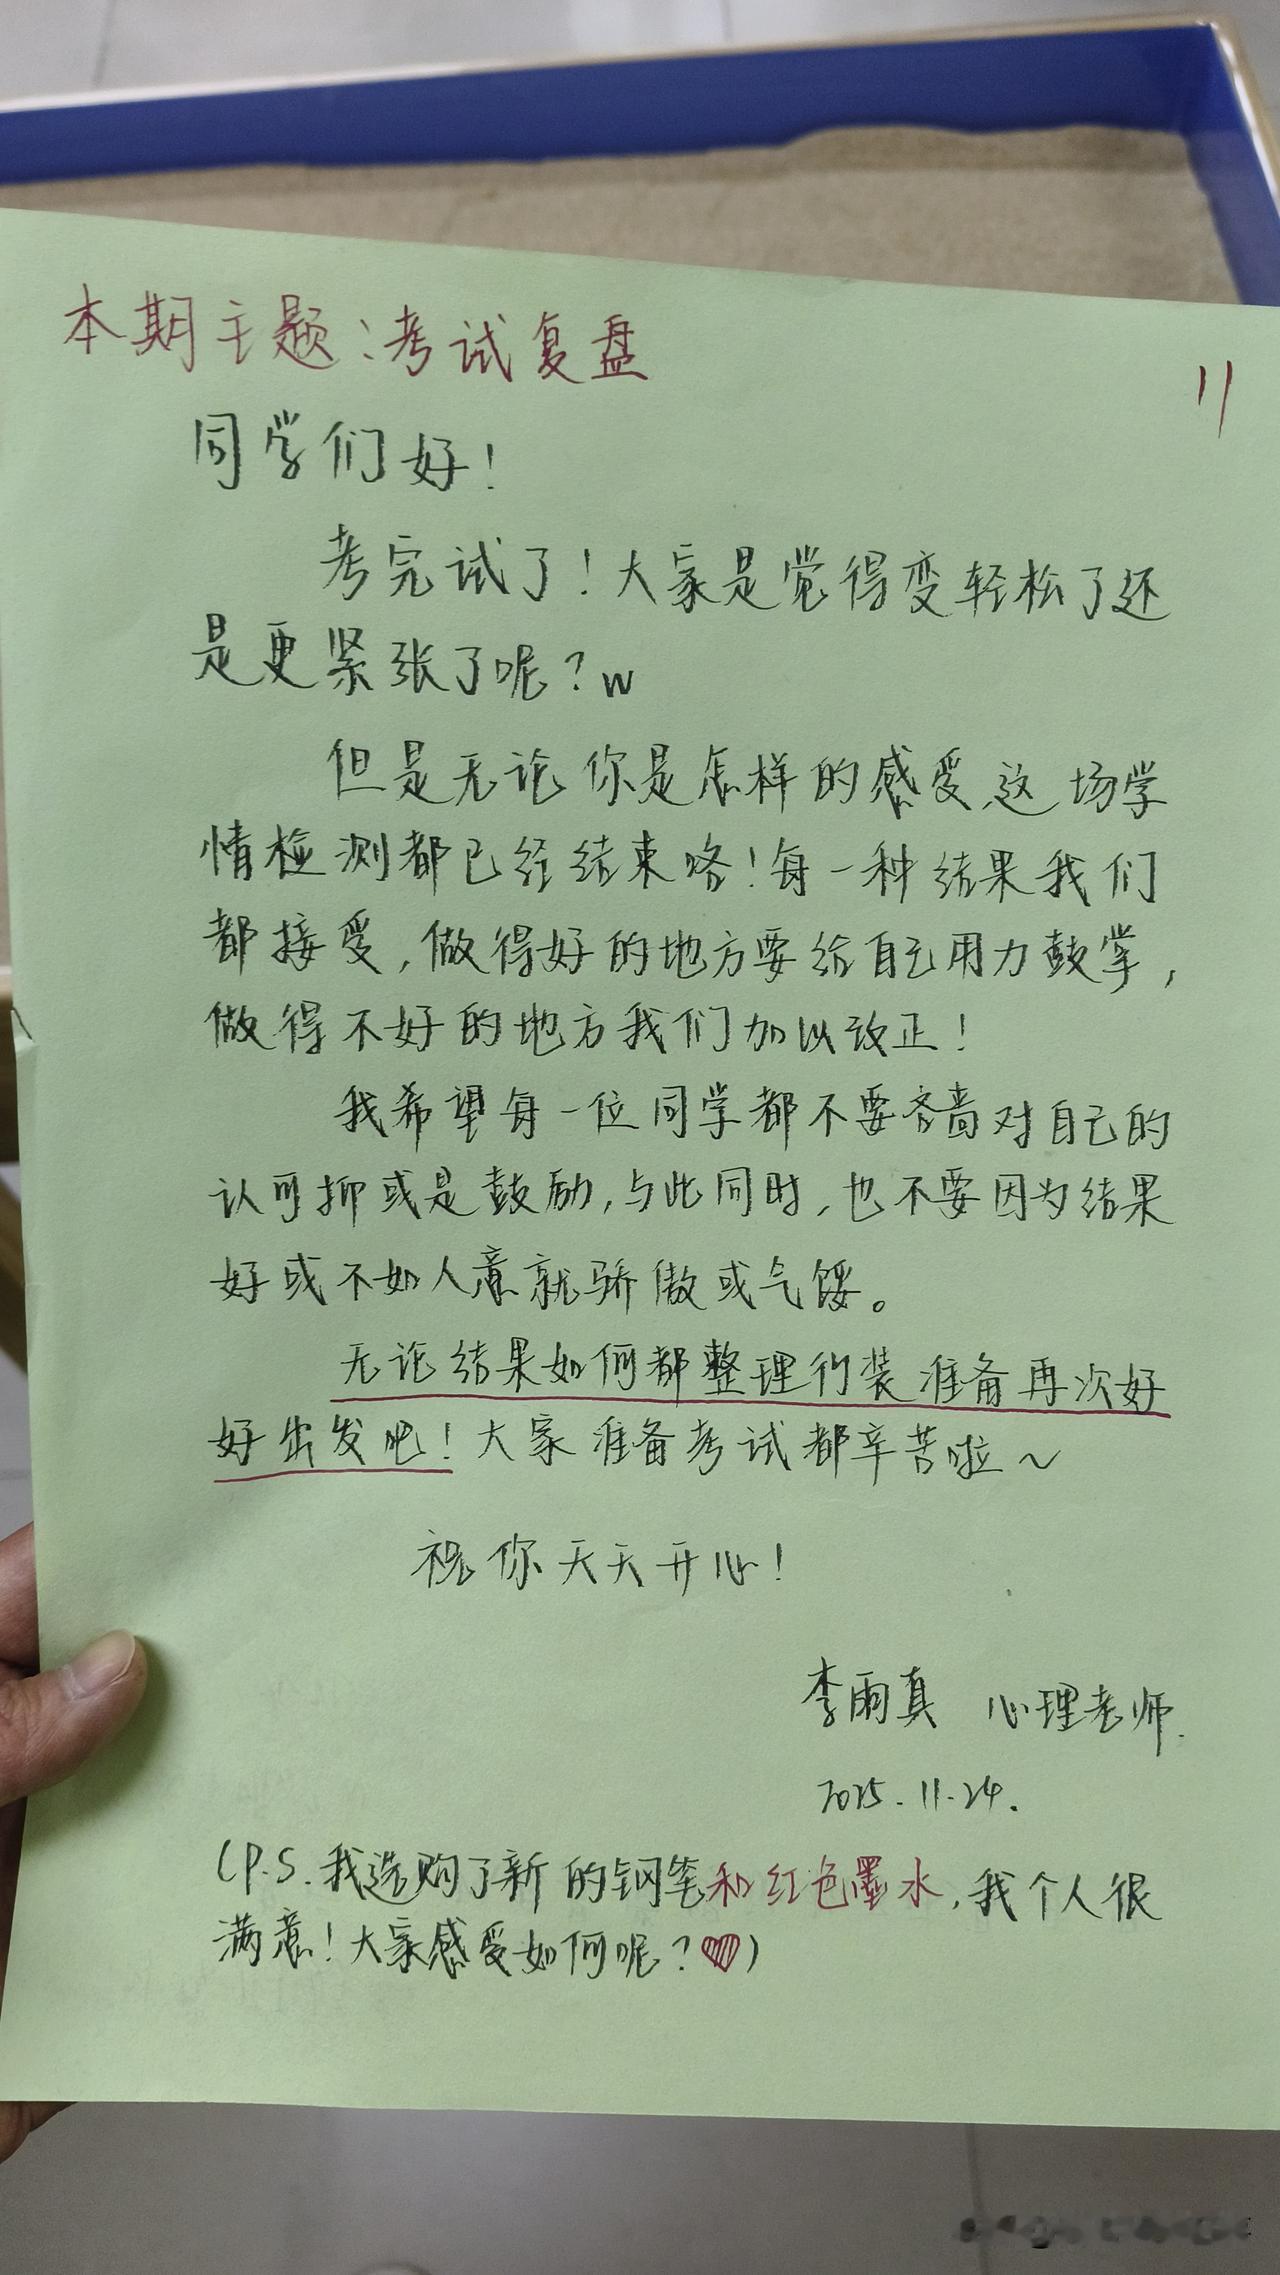 本期主题:考试复盘
11
同学们好!
考完试了!大家是觉得变轻松了还
是更紧张了呢?w
但是无论你是怎样的感受,这场学
情检测都已经结束咯!每一种结果我们
都接受,做得好的地方要给自己用力鼓掌,
做得不好的地方我们加以改正!
我希望每一位同学都不要吝啬对自己的
认可抑或是鼓励,与此同时,也不要因为结果
好或不如人意就骄傲或气馁。
无论结果如何都整理行装准备再次好
好出发吧!大家准备考试都辛苦啦~
祝你天天开心!
李雨真 心理老师.
2025.11.24.
(P.S.我选购了新的钢笔和红色墨水,我个人很
满意!大家感受如何呢?♡)